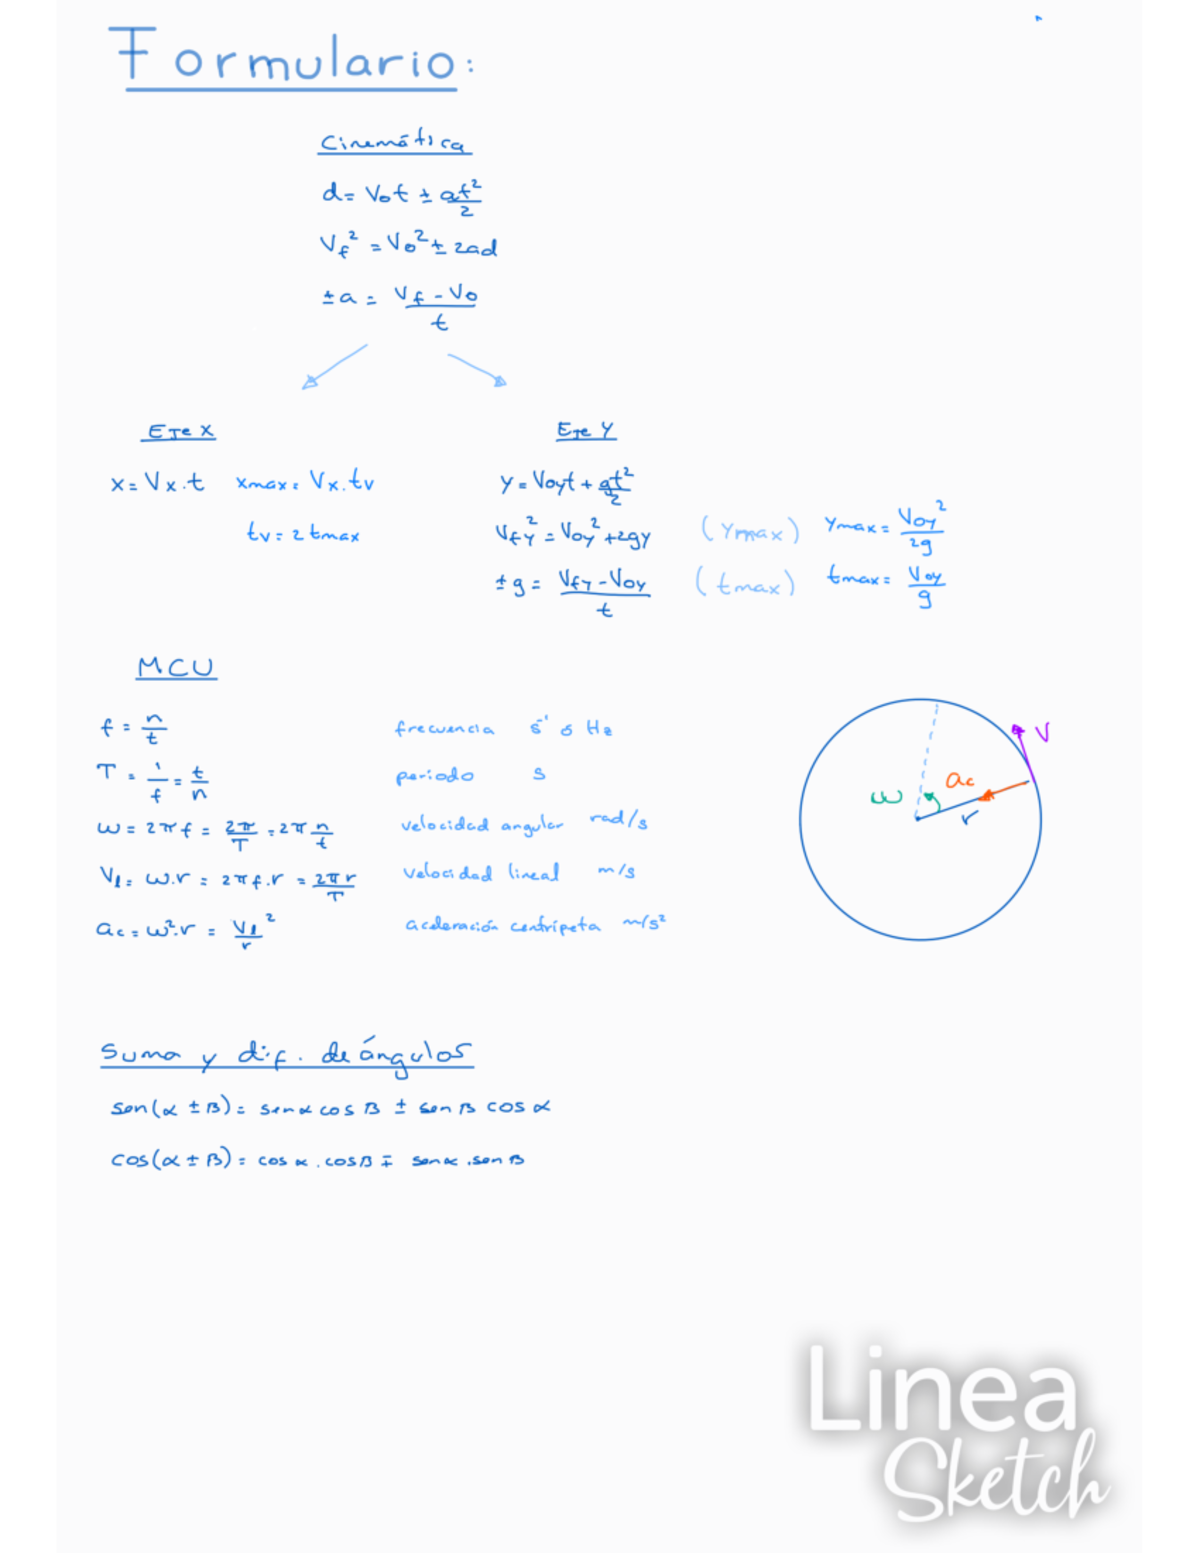 Formulario:
Cinemática
d = V₀t ± at²/2
Vf² = V₀² ± 2ad
±a = (Vf - V₀)/t
Eje X
x = Vx.t xmax = Vx.tv
tv = 2 tmax
Eje Y
y = Voyt + gt²/2
Vfy² = Voy² + 2gy (Ymax) Ymax = Voy²/2g
±g = (Vfy - Voy)/t (tmax) tmax = Voy/g
MCU
f = n/t frecuencia s⁻¹ ó Hz
T = 1/f = t/n periodo s
ω = 2πf = 2π/T = 2π n/t velocidad angular rad/s
Vl = ω.r = 2πf.r = 2πr/T velocidad lineal m/s
ac = ω².r = Vl²/r aceleración centrípeta m/s²
V
ac
ω
r
Suma y dif. de ángulos
sen(α ± B) = senα cos B ± sen B cos α
cos(α ± B) = cos α . cosB ∓ senα . sen B
Linea
Sketch